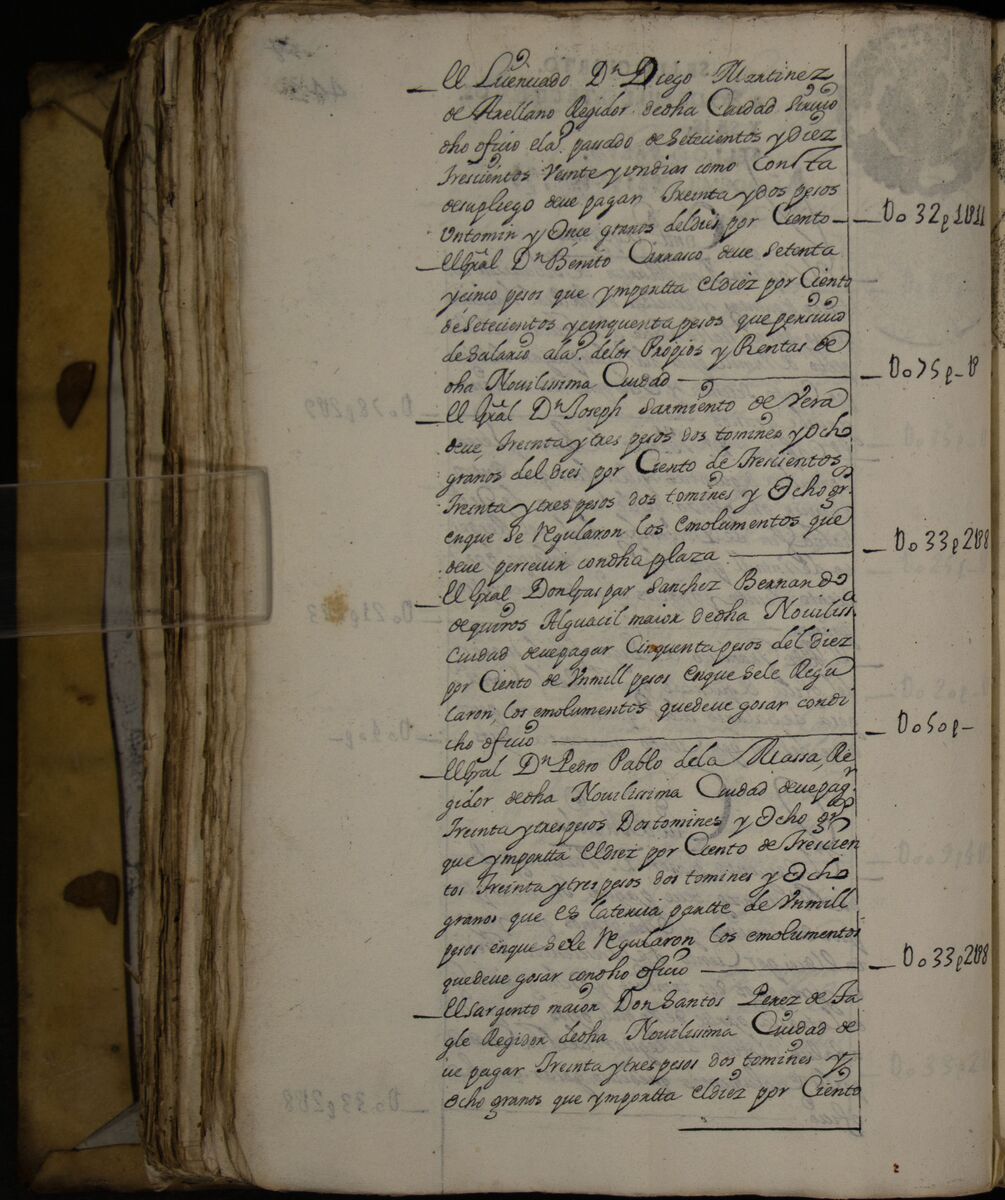 El Licenciado Dn Diego Martinez
de Arellano Regidor dedha Ciudad Siruio
dho ofisio ela.o pasado de Setecientos y Diez
trescientos Veinte y un dias como Consta
desupliego deue pagar treinta y dos pesos
Un tomin y Once granos deldies por Ciento — Do 32p1t11
El Gral Dn Benito Carrasco deue Setenta
y cinco pesos que ymportta El diez por Ciento
de Setecientos y cinquenta pesos que perciuio
de Salario ala.o delos Propios y Rentas de
dha Nouilissima Ciudad — Do75p-t
El Gral Dn Joseph Sarmiento de Vera
deue, treinta y tres pesos dos tomines y Ocho
granos del dies por Ciento de trescientos
treinta y tres pesos dos tomines y Ocho gr.s
enque se Regularon los emolumentos que
deue perseuir condha plaza — Do33p2t8
El Gral Don Gaspar Sanchez Bernardo
dequiros Alguacil maior dedha Nouiliss.a
Ciudad deuepagar Cinquenta pesos del diez
por Ciento de Vnmill pesos enque Sele Regu
laron, los emolumentos quedeue gosar condi
cho ofisio — Do50p-
El Gral Dn Pedro Pablo dela Massa, Re
gidor dedha Nouilissima Ciudad deuepag.r
treinta y tres pesos Dos tomines y Ocho gr.s
que ymportta El diez por Ciento de trescien
tos treinta y tres pesos dos tomines y Ocho
granos que es latercia partte de Vnmill
pesos enque Sele Regularon los emolumentos
quedeue gosar condho ofisio — Do33p2t8
El Sargento maior Don Santos Perez de Ta
gle Regidor dedha Nouilissima Ciudad de
ue pagar treinta y tres pesos dos tomines y
Ocho granos que ymportta El diez por Ciento